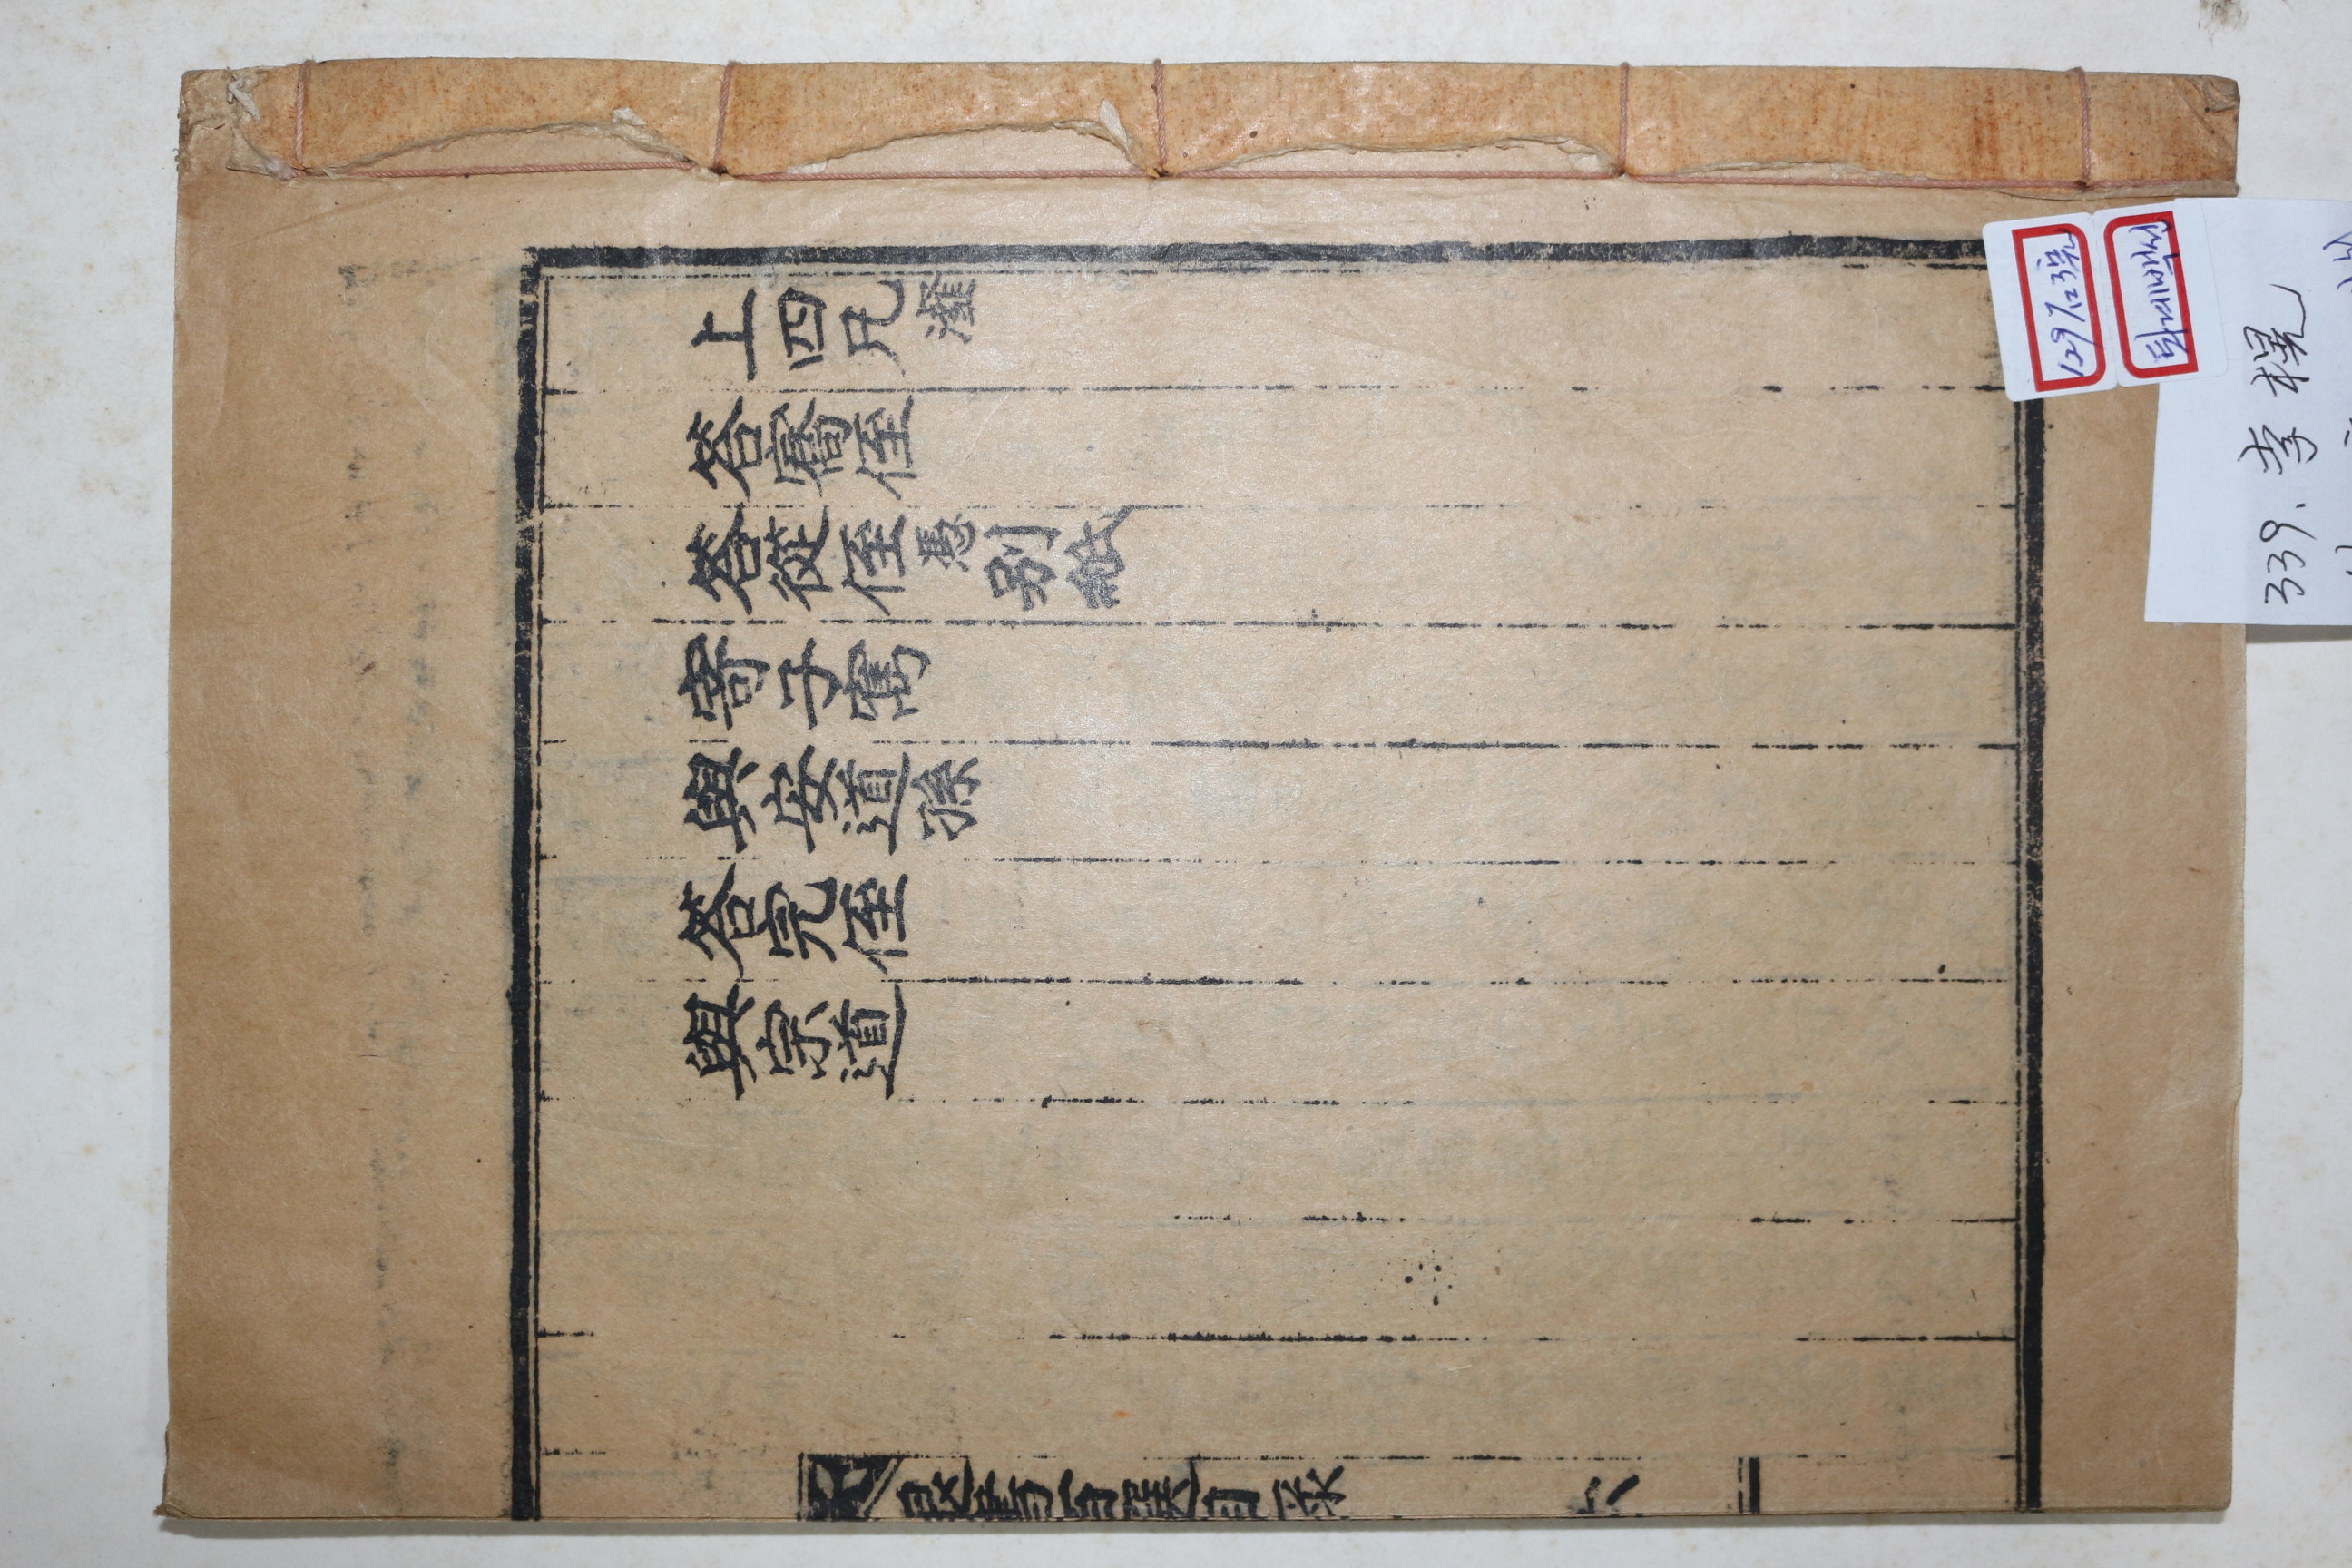 上四兄瀣
答寯侄
答從侄憑別紙
寄子寯
與安道孫
答完侄
與宗道
退書百選目录
六
129 石3完
퇴계백선
339. 李榥